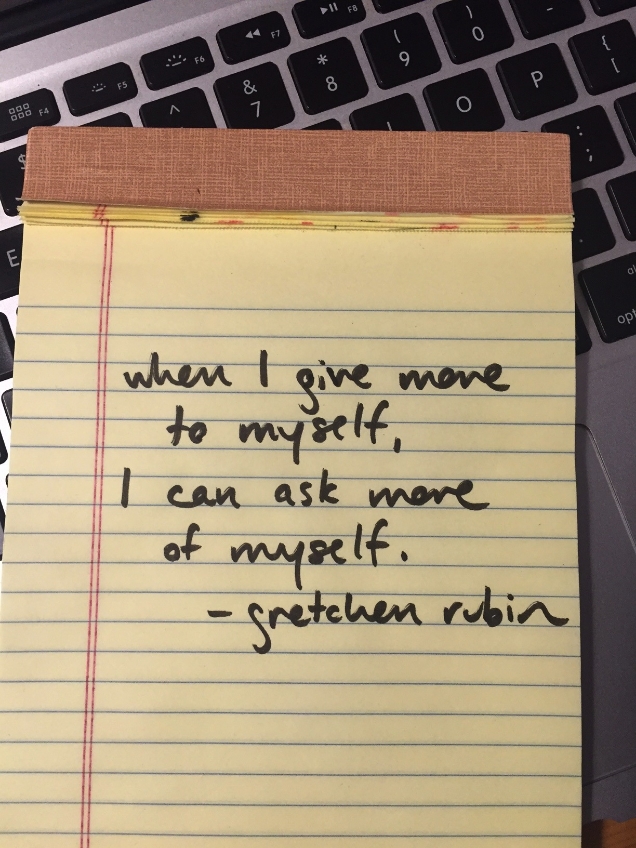 F4 F5 F6 F7 F8
^ & 7 * 8 ( 9 ) 0 -
O P { [
$ : ;
E
opt
when I give more
to myself,
I can ask more
of myself.
- gretchen rubin